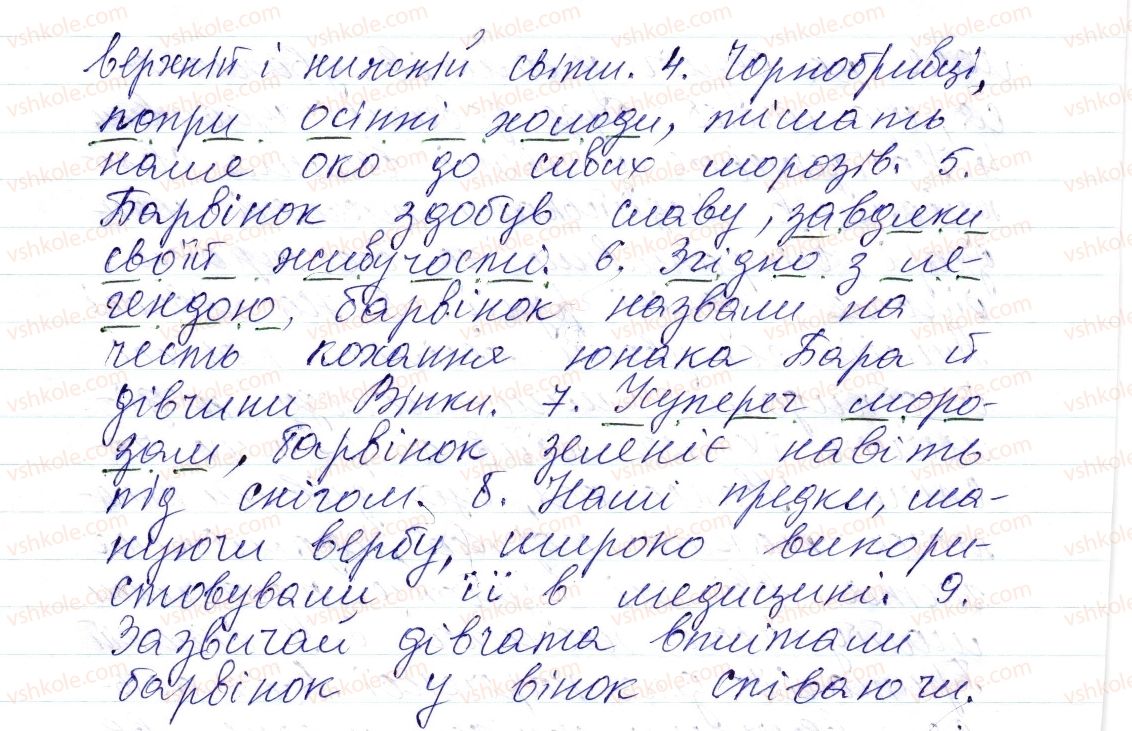 верхній і нижній світи. 4. Чорнобривці,
попри осінні холоди, тішать
наше око до сивих морозів. 5.
Барвінок здобув славу, завдяки
своїй живучості. 6. Згідно з ле-
гендою, барвінок назвали на
честь кохання юнака Бара й
дівчини Вінки. 7. Усупереч моро-
зам, барвінок зеленіє навіть
під снігом. 8. Наші предки, ша-
нуючи вербу, широко викори-
стовували її в медицині. 9.
Зазвичай дівчата вплітали
барвінок у вінок співаючи.